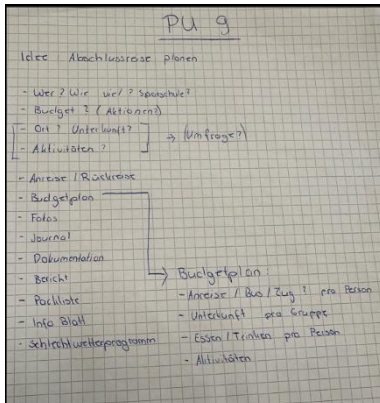 PU 9
Idee Abschlussreise planen
- Wer? Wie viel? Sparschule?
- Budget? (Aktionen?)
- Ort? Unterkunft?
- Aktivitäten?
→ (Umfrage?)
- Anreise / Rückreise
- Budgetplan
- Fotos
- Journal
- Dokumentation
- Bericht
- Packliste
- Info Blatt
- Schlechtwetterprogramm
Budgetplan:
- Anreise / Bus / Zug? pro Person
- Unterkunft pro Gruppe
- Essen / Trinken pro Person
- Aktivitäten